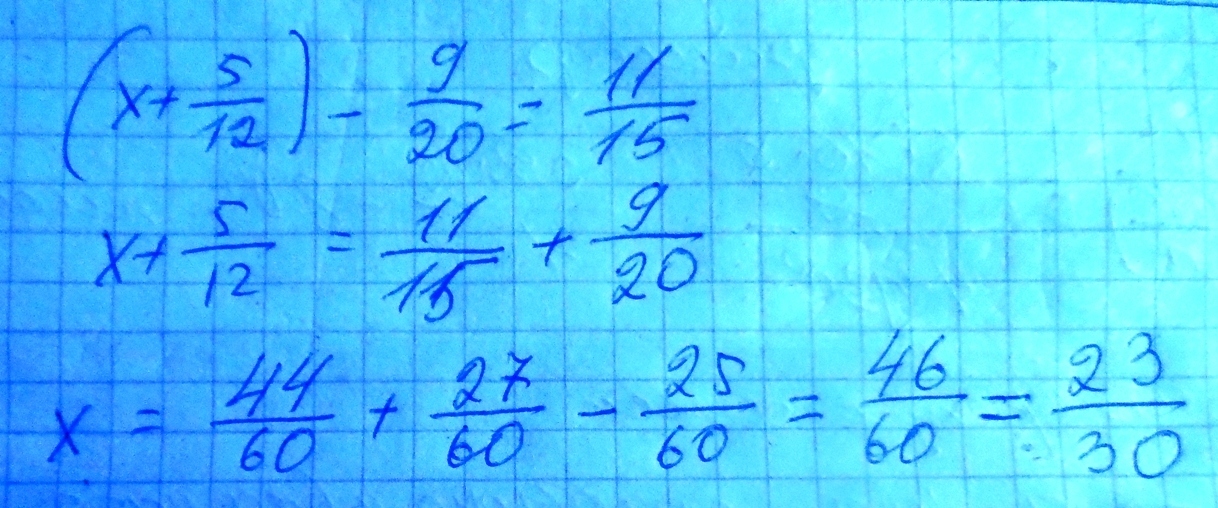 (x + 5/12) - 9/20 = 11/15
x + 5/12 = 11/15 + 9/20
x = 44/60 + 27/60 - 25/60 = 46/60 = 23/30